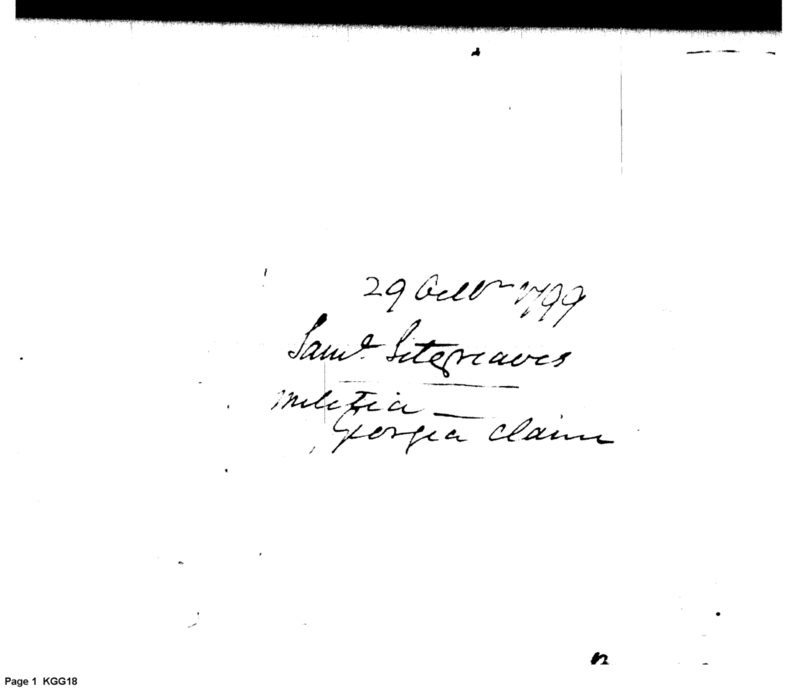 29 Octbr 1799
Saml. Sitgreaves
Militia —
Georgia Claim
n
Page 1 KGG18